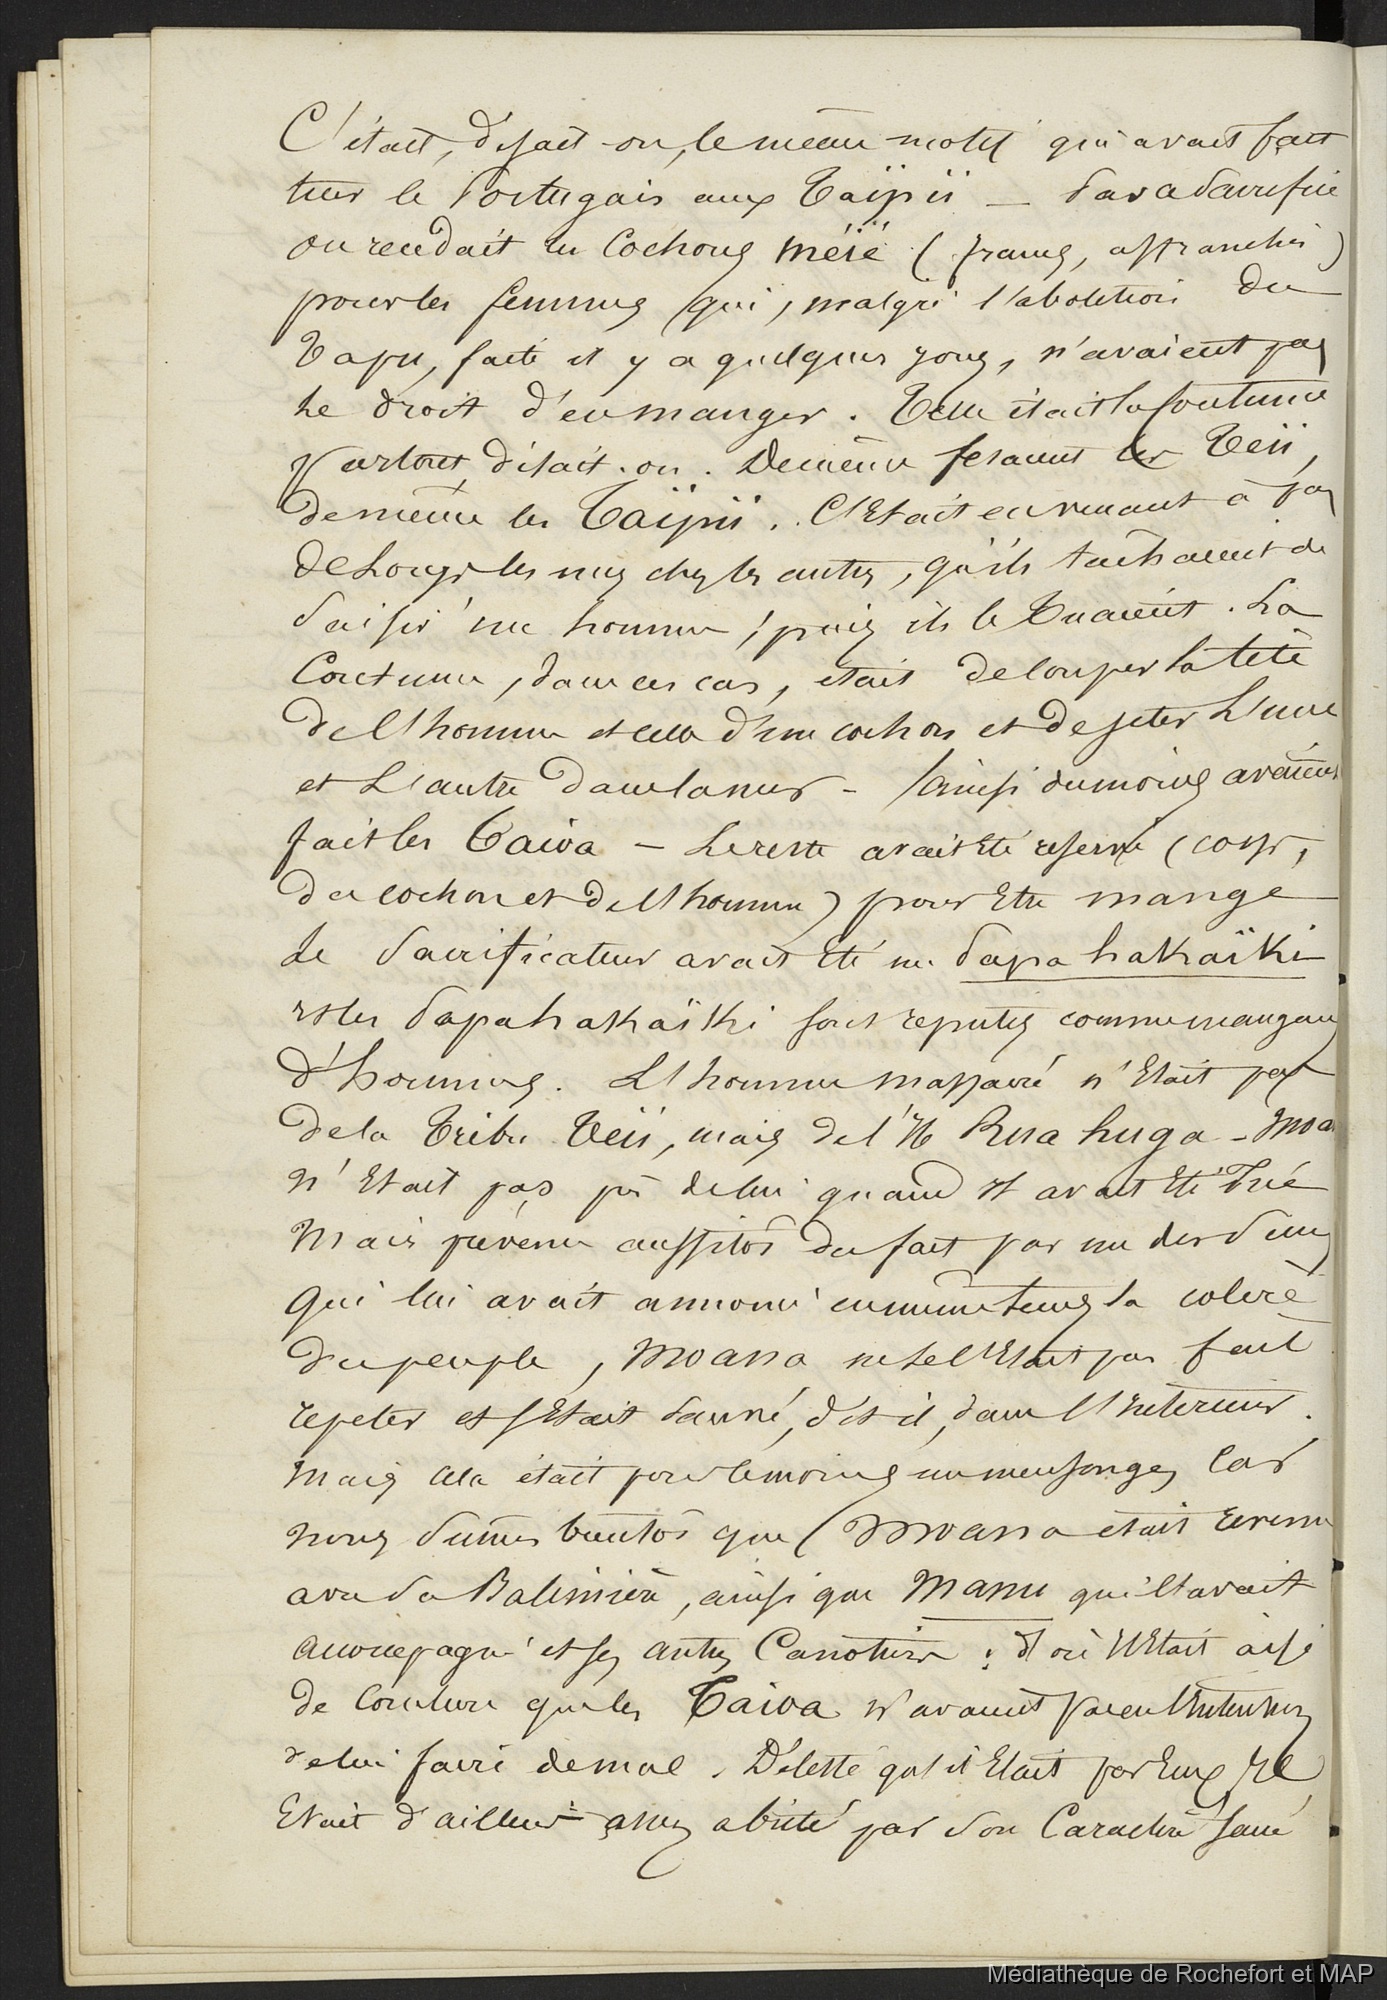 C'était, disait-on, le même motif qui avait fait
tuer le Portugais aux Taïpii — Par ce sacrifice
on rendait les Cochons méïé (francs, affranchis)
pour les femmes qui, malgré l'abolition du
Tapu, faite il y a quelques jours, n'avaient pas
le droit d'en manger. Telle était la Coutume
partout, disait-on. De même fesaient les Teii,
de même les Taïpii. C'était en venant à pas
de Loups les uns chez les autres, qu'ils tachaient de
saisir un homme, puis ils le tuaient. La
Coutume, dans ces cas, était de couper la tête
de l'homme et celle d'un cochon et de jeter L'une
et L'autre dans la mer - Ainsi du moins avaient
fait les Taioa — Le reste avait été reservé (corps,
du cochon et de l'homme) pour être mangé
Le Sacrificateur avait été un Papa hakaïki
et les Papa hakaïki sont reputés comme mangeurs
d'hommes. L'homme massacré n'était pas
de la Tribu Teii, mais de l'Ile Rua huga - Moana
n'était pas près de lui quand il avait été tué
Mais prévenu aussitôt du fait par un des siens
qui lui avait annoncé en même tems la colère
du peuple, Moana ne se l'était pas fait
repeter et s'était sauvé, dit-il, dans l'interieur.
Mais cela était pour le moins un mensonge, Car
nous sumes bientôt que Moana était revenu
avec sa Baleinière, ainsi que Manu qui l'avait
accompagné et ses autres Canotiers ; d'où il était aisé
de Conclure que les Taioa n'avaient pas eu l'intention
de lui faire de mal. Détesté qu'il était par Eux Il
Etait d'ailleurs assez abrité par son Caractère sacré
Médiathèque de Rochefort et MAP